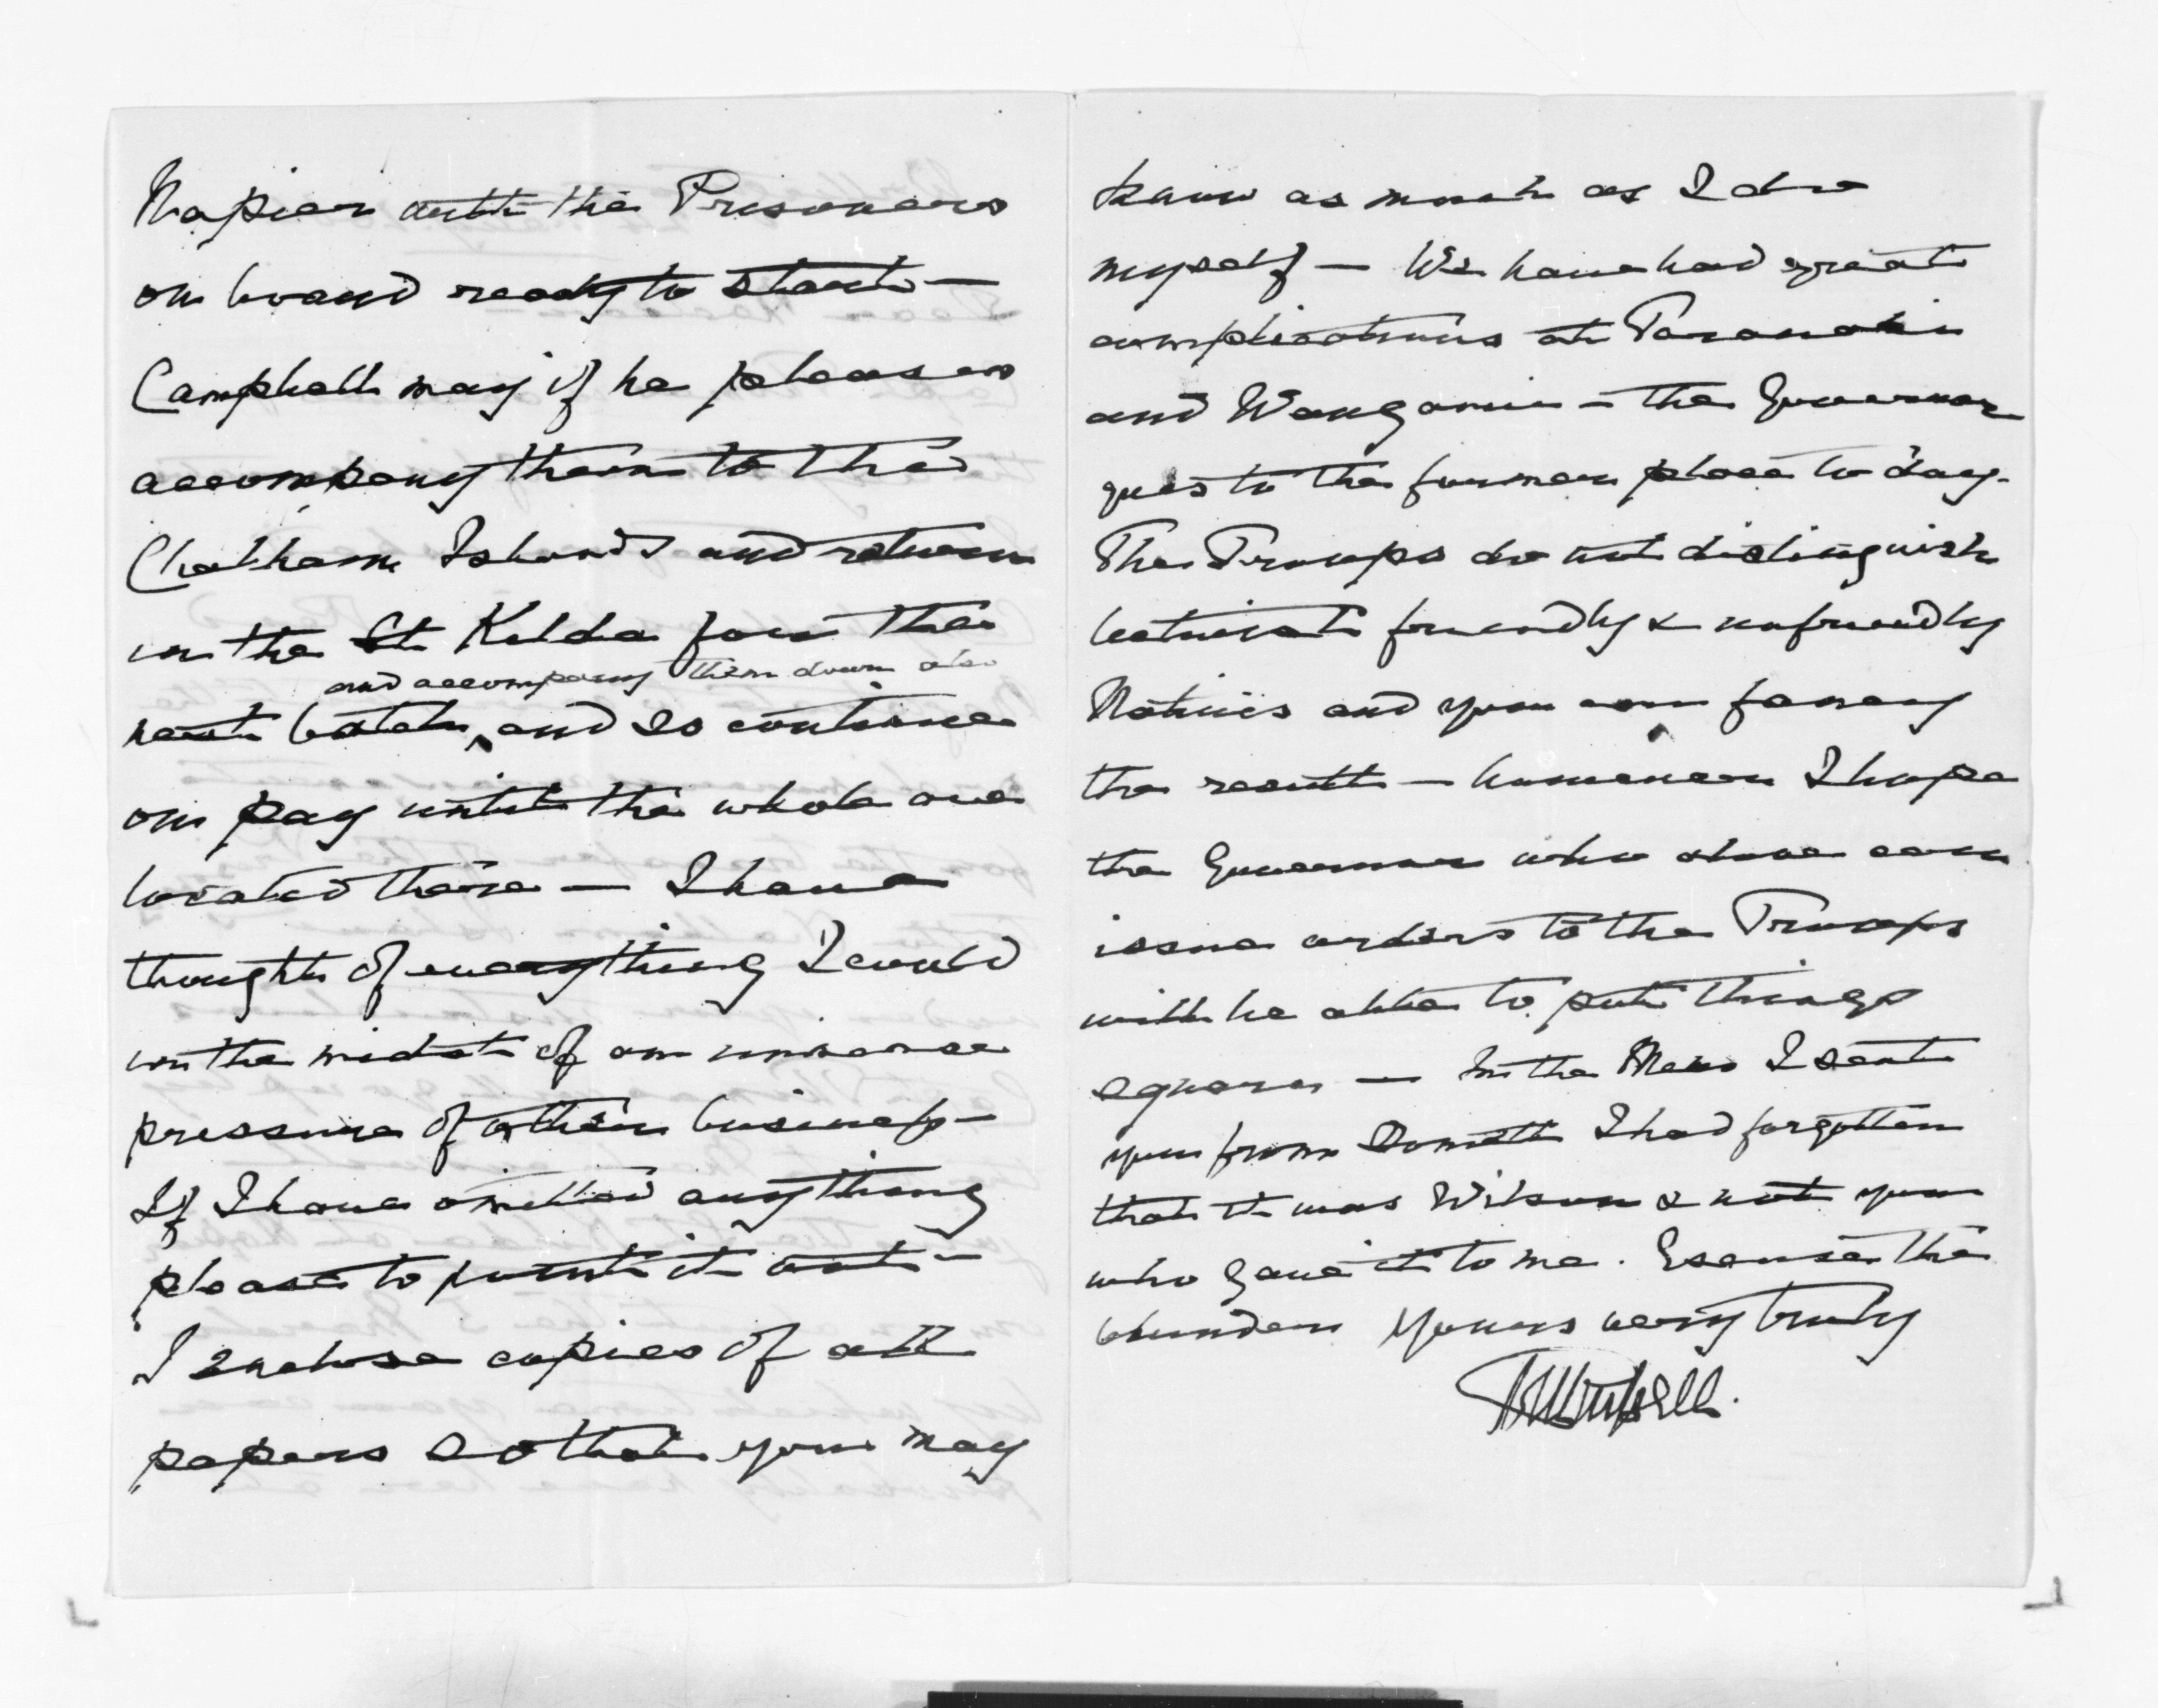 Napier with the Prisoners
on board ready to start —
Campbell may if he pleases
accompany them to the
Chatham Islands and return
in the St Kilda for the
and accompany them down also
next batch, and so continue
on pay until the whole are
located there — I have
thought of everything I could
in the midst of an immense
pressure of other business —
If I have omitted anything
please to point it out —
I enclose copies of all
papers so that you may
know as much as I do
myself — We have had great
complications at Taranaki
and Wanganui — the Governor
goes to the former place to day.
The Troops do not distinguish
between friendly & unfriendly
Natives and you can fancy
the result — however I hope
the Governor who alone can
issue orders to the Troops
will be able to put things
square — In the Memo I sent
you from Domett I had forgotten
that it was Wilson & not you
who gave it to me. Excuse the
blunder Yours very truly